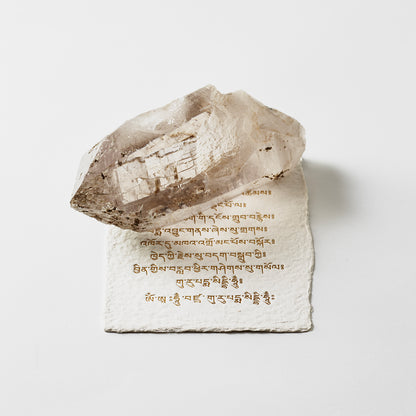 ཚམས༔
དང་པོ་ལ༔
མཆོག་གི་དངོས་གྲུབ་བརྙེས༔
པདྨ་འབྱུང་གནས་ཞེས་སུ་གྲགས༔
འཁོར་དུ་མཁའ་འགྲོ་མང་པོས་བསྐོར༔
ཁྱེད་ཀྱི་རྗེས་སུ་བདག་བསྒྲུབ་ཀྱི༔
བྱིན་གྱིས་བརླབ་ཕྱིར་གཤེགས་སུ་གསོལ༔
གུ་རུ་པདྨ་སིདྡྷི་ཧཱུྃ༔
ཨོཾ་ཨཱཿཧཱུྃ་བཛྲ་གུ་རུ་པདྨ་སིདྡྷི་ཧཱུྃ༔